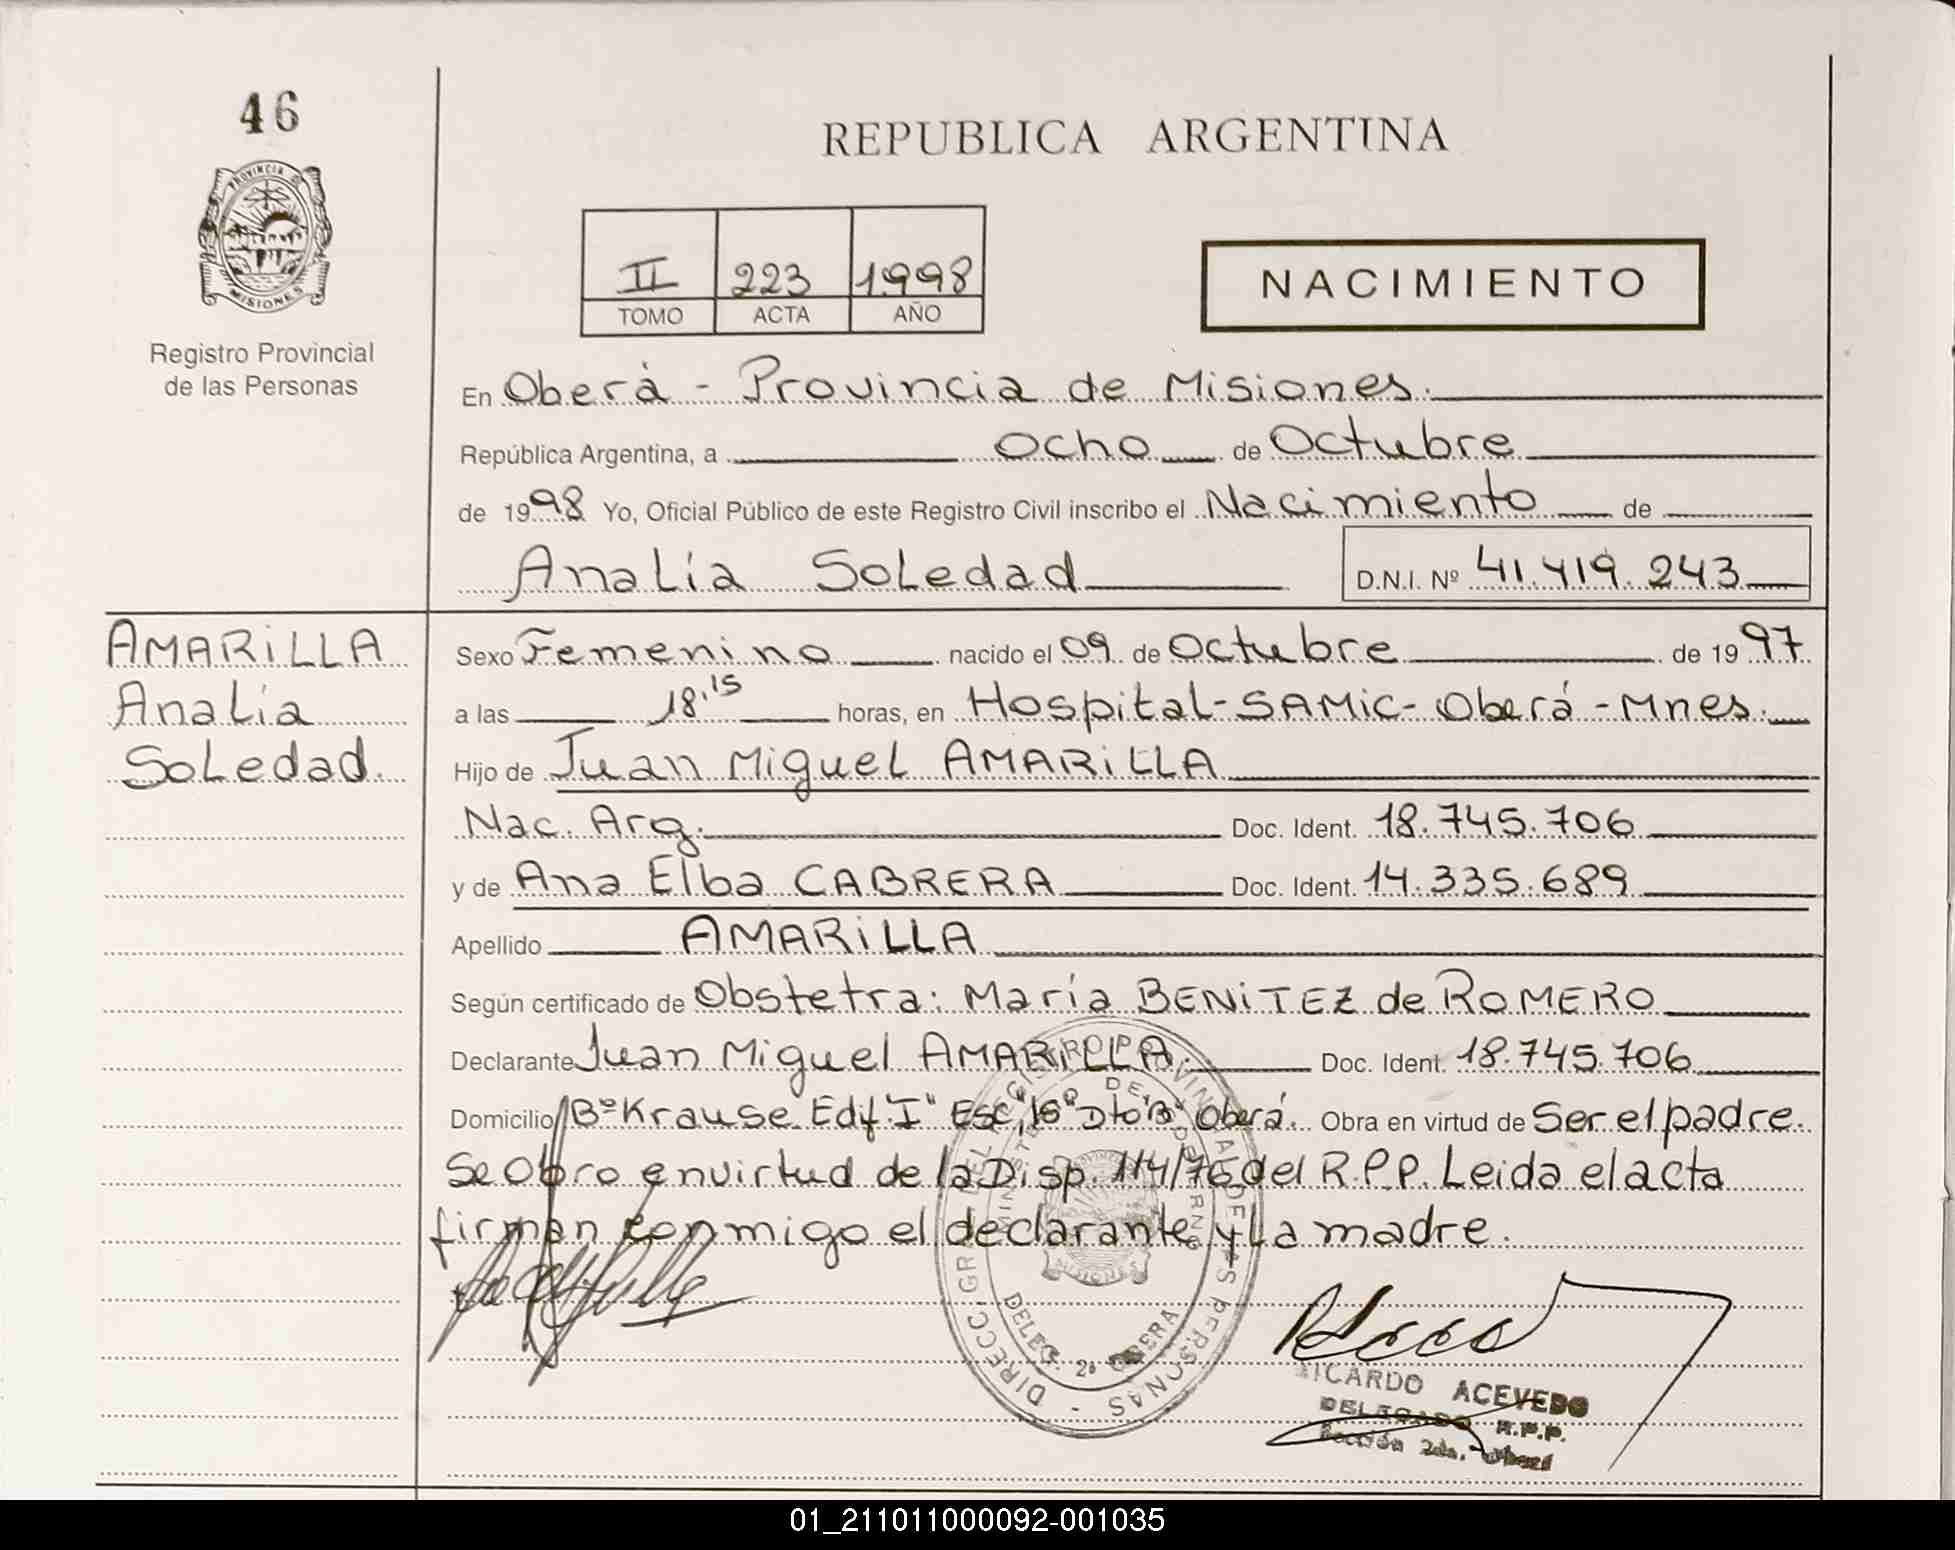 46
REPUBLICA ARGENTINA
PROVINCIA DE
MISIONES
Registro Provincial
de las Personas
II 223 1998
TOMO ACTA AÑO
NACIMIENTO
En Oberá - Provincia de Misiones.
República Argentina, a ocho de Octubre
de 1998 Yo, Oficial Público de este Registro Civil inscribo el Nacimiento de
Analía Soledad D.N.I. Nº 41.419.243
AMARiLLA
Analía
Soledad.
Sexo Femenino nacido el 09 de Octubre de 1997
a las 18,15 horas, en Hospital-SAMic-Oberá-Mnes.
Hijo de Juan Miguel AMARiLLA
Nac. Arg. Doc. Ident. 18.745.706
y de Ana Elba CABRERA Doc. Ident. 14.335.689
Apellido AMARiLLA
Según certificado de Obstetra: María BENiTEZ de ROMERO
Declarante Juan Miguel AMARiLLA. Doc. Ident. 18.745.706
Domicilio Bº Krause Edif. "I" Esc. Dto "B" Oberá. Obra en virtud de Ser el padre.
Se Obro en virtud de la Disp. 114/76 del R.P.P. Leida el acta
firman conmigo el declarante y La madre.
DIRECC. GRAL DEL REGISTRO PROVINCIAL DE LAS PERSONAS
MINISTERIO DE GOBIERNO
MISIONES
DELEG. 2ª OBERA
RICARDO ACEVEDO
DELEGADO R.P.P.
Sección 2da. - Oberá
01_211011000092-001035